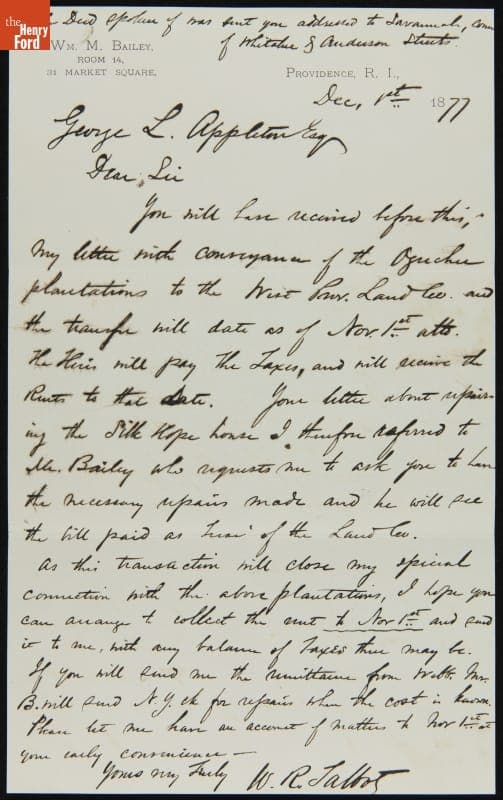 the Henry Ford
The Deed spoken of was sent you addressed to Savannah, corner
of Whitaker & Anderson Streets.
WM. M. BAILEY,
ROOM 14,
31 MARKET SQUARE,
PROVIDENCE, R. I.,
Dec, 1st 1877
George L. Appleton Esq
Dear Sir
You will have received before this,
my letter with conveyance of the Ogechee
plantations to the West Prov. Land Co. and
the transfer will date as of Nov. 1st
the Heirs will pay the Taxes, and will receive the
Rents to that date. Your letter about repair-
ing the Silk Hope house I therefore referred to
Mr. Bailey who requests me to ask you to have
the necessary repairs made and he will see
the bill paid as Treas' of the Land Co.
As this transaction will close my special
connection with the above plantations, I hope you
can arrange to collect the rent to Nov 1st and send
it to me, with any balance of Taxes there may be.
If you will send me the remittance from Webb, Mr.
B. will send N.Y. ck for repairs when the cost is known.
Please let me have an account of matters to Nov 1st at
your early convenience —
Yours very truly W. R. Talbot